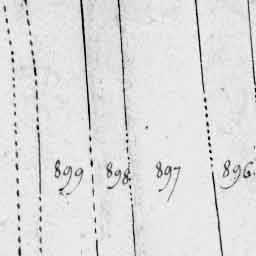 899 898 897 896.